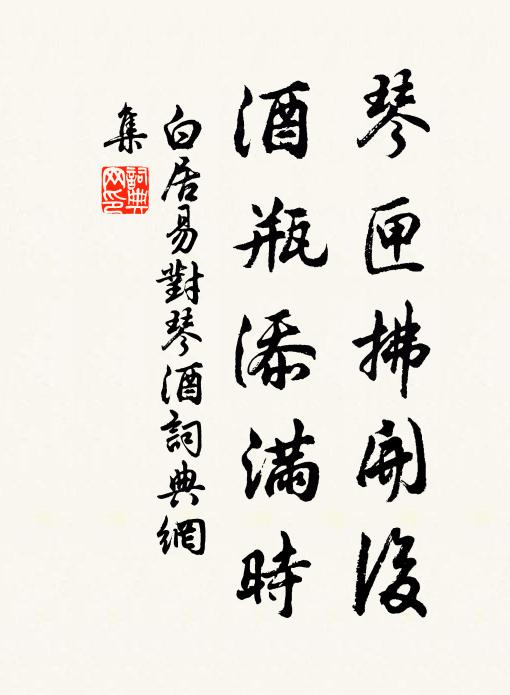 琴匣拂開後
酒瓶添滿時
白居易對琴酒詞典網
集
詞典
网印